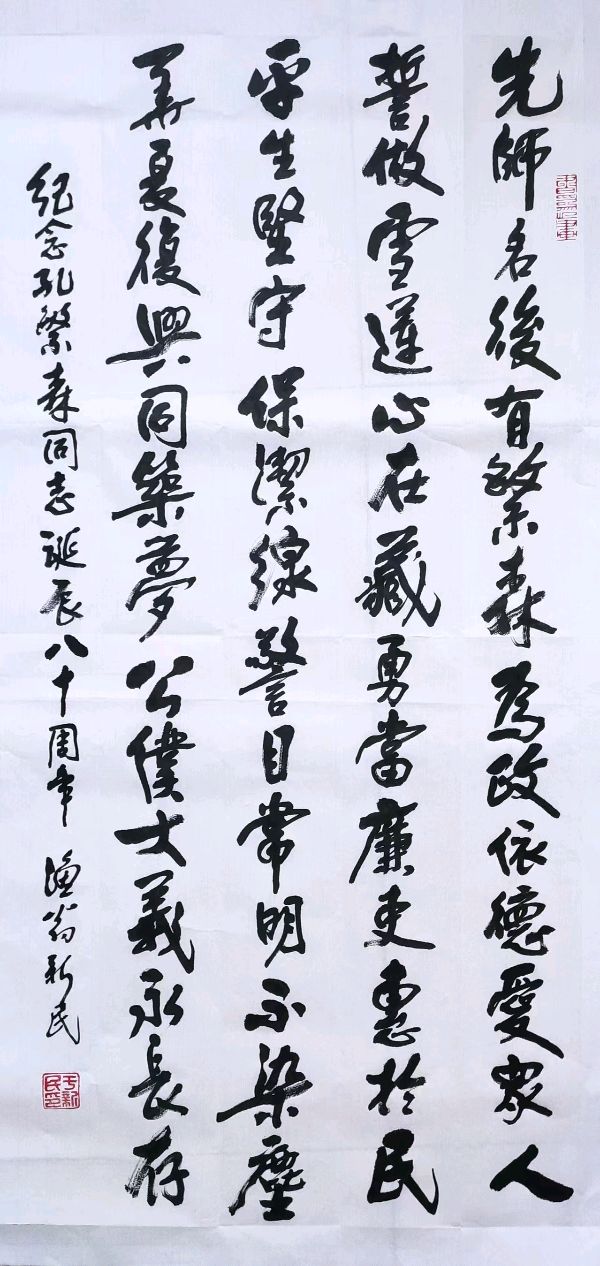 先師名後有繁森為政依德愛眾人
誓做雪蓮心在藏勇當廉吏惠於民
平生堅守保潔線警目常明不染塵
華夏復興同築夢公僕大義永長存
紀念孔繁森同志誕辰八十周年 漁翁新民
于新民印